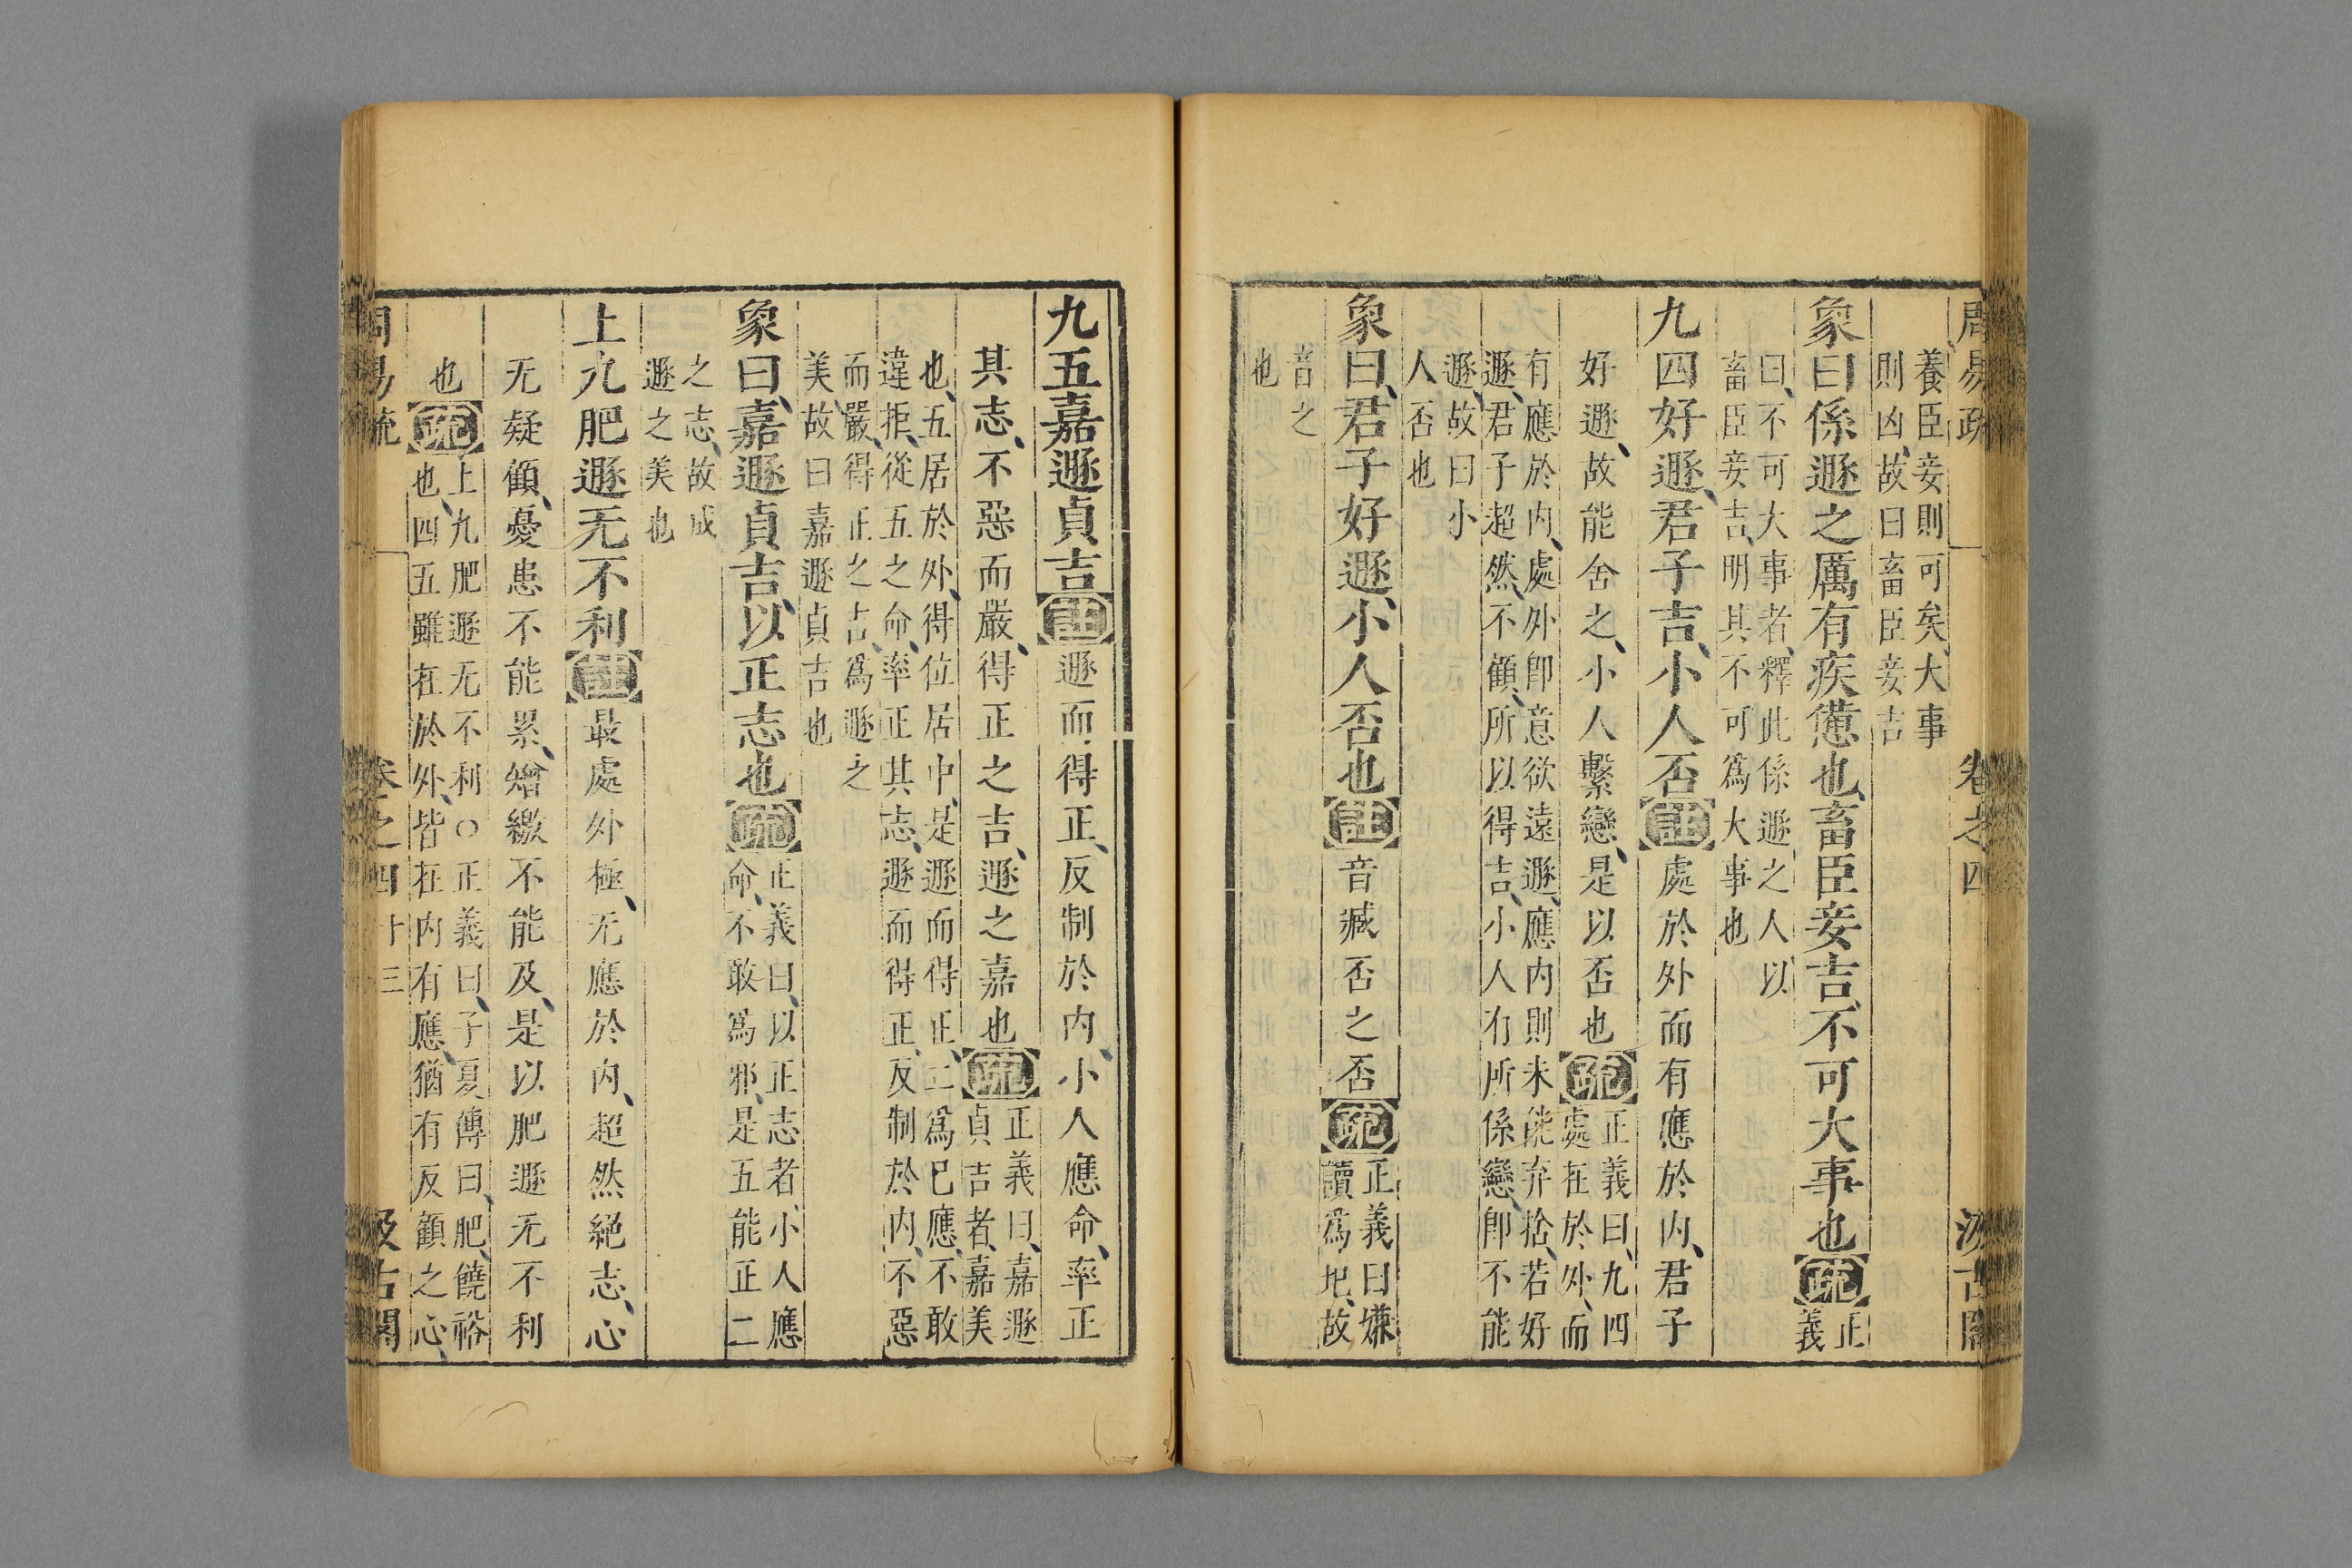 周易疏 卷之四 汲古閣
養臣妾則可矣、大事
則凶、故曰畜臣妾吉
象曰係遯之厲有疾憊也、畜臣妾吉、不可大事也疏正
義
曰、不可大事者、釋此係遯之人以
畜臣妾吉、明其不可爲大事也
九四好遯、君子吉、小人否註處於外而有應於内、君子
好遯、故能舍之、小人繫戀、是以否也疏正義曰、九四
處在於外、而
有應於内、處外卽意欲遠遯、應内則未能弃捨、若好
遯、君子超然不顧、所以得吉、小人有所係戀、卽不能
遯、故曰小
人否也
象曰、君子好遯、小人否也註音臧否之否疏正義曰嫌
讀爲圯、故
音之
也
九五嘉遯貞吉註遯而得正、反制於内、小人應命、率正
其志、不惡而嚴、得正之吉、遯之嘉也疏正義曰、嘉遯
貞吉者、嘉美
也、五居於外、得位居中、是遯而得正、二爲己應、不敢
違拒、從五之命、率正其志、遯而得正、反制於内、不惡
而嚴、得正之吉、爲遯之
美、故曰嘉遯貞吉也
象曰、嘉遯貞吉、以正志也疏正義曰、以正志者、小人應
命、不敢爲邪、是五能正二
之志、故成
遯之美也
上九肥遯无不利註最處外極、无應於内、超然絕志、心
无疑顧、憂患不能累、矰繳不能及、是以肥遯无不利
也疏上九肥遯无不利○正義曰、子夏傳曰、肥、饒裕
也、四五雖在於外、皆在内有應、猶有反顧之心、
周易疏 卷之四 十三 汲古閣